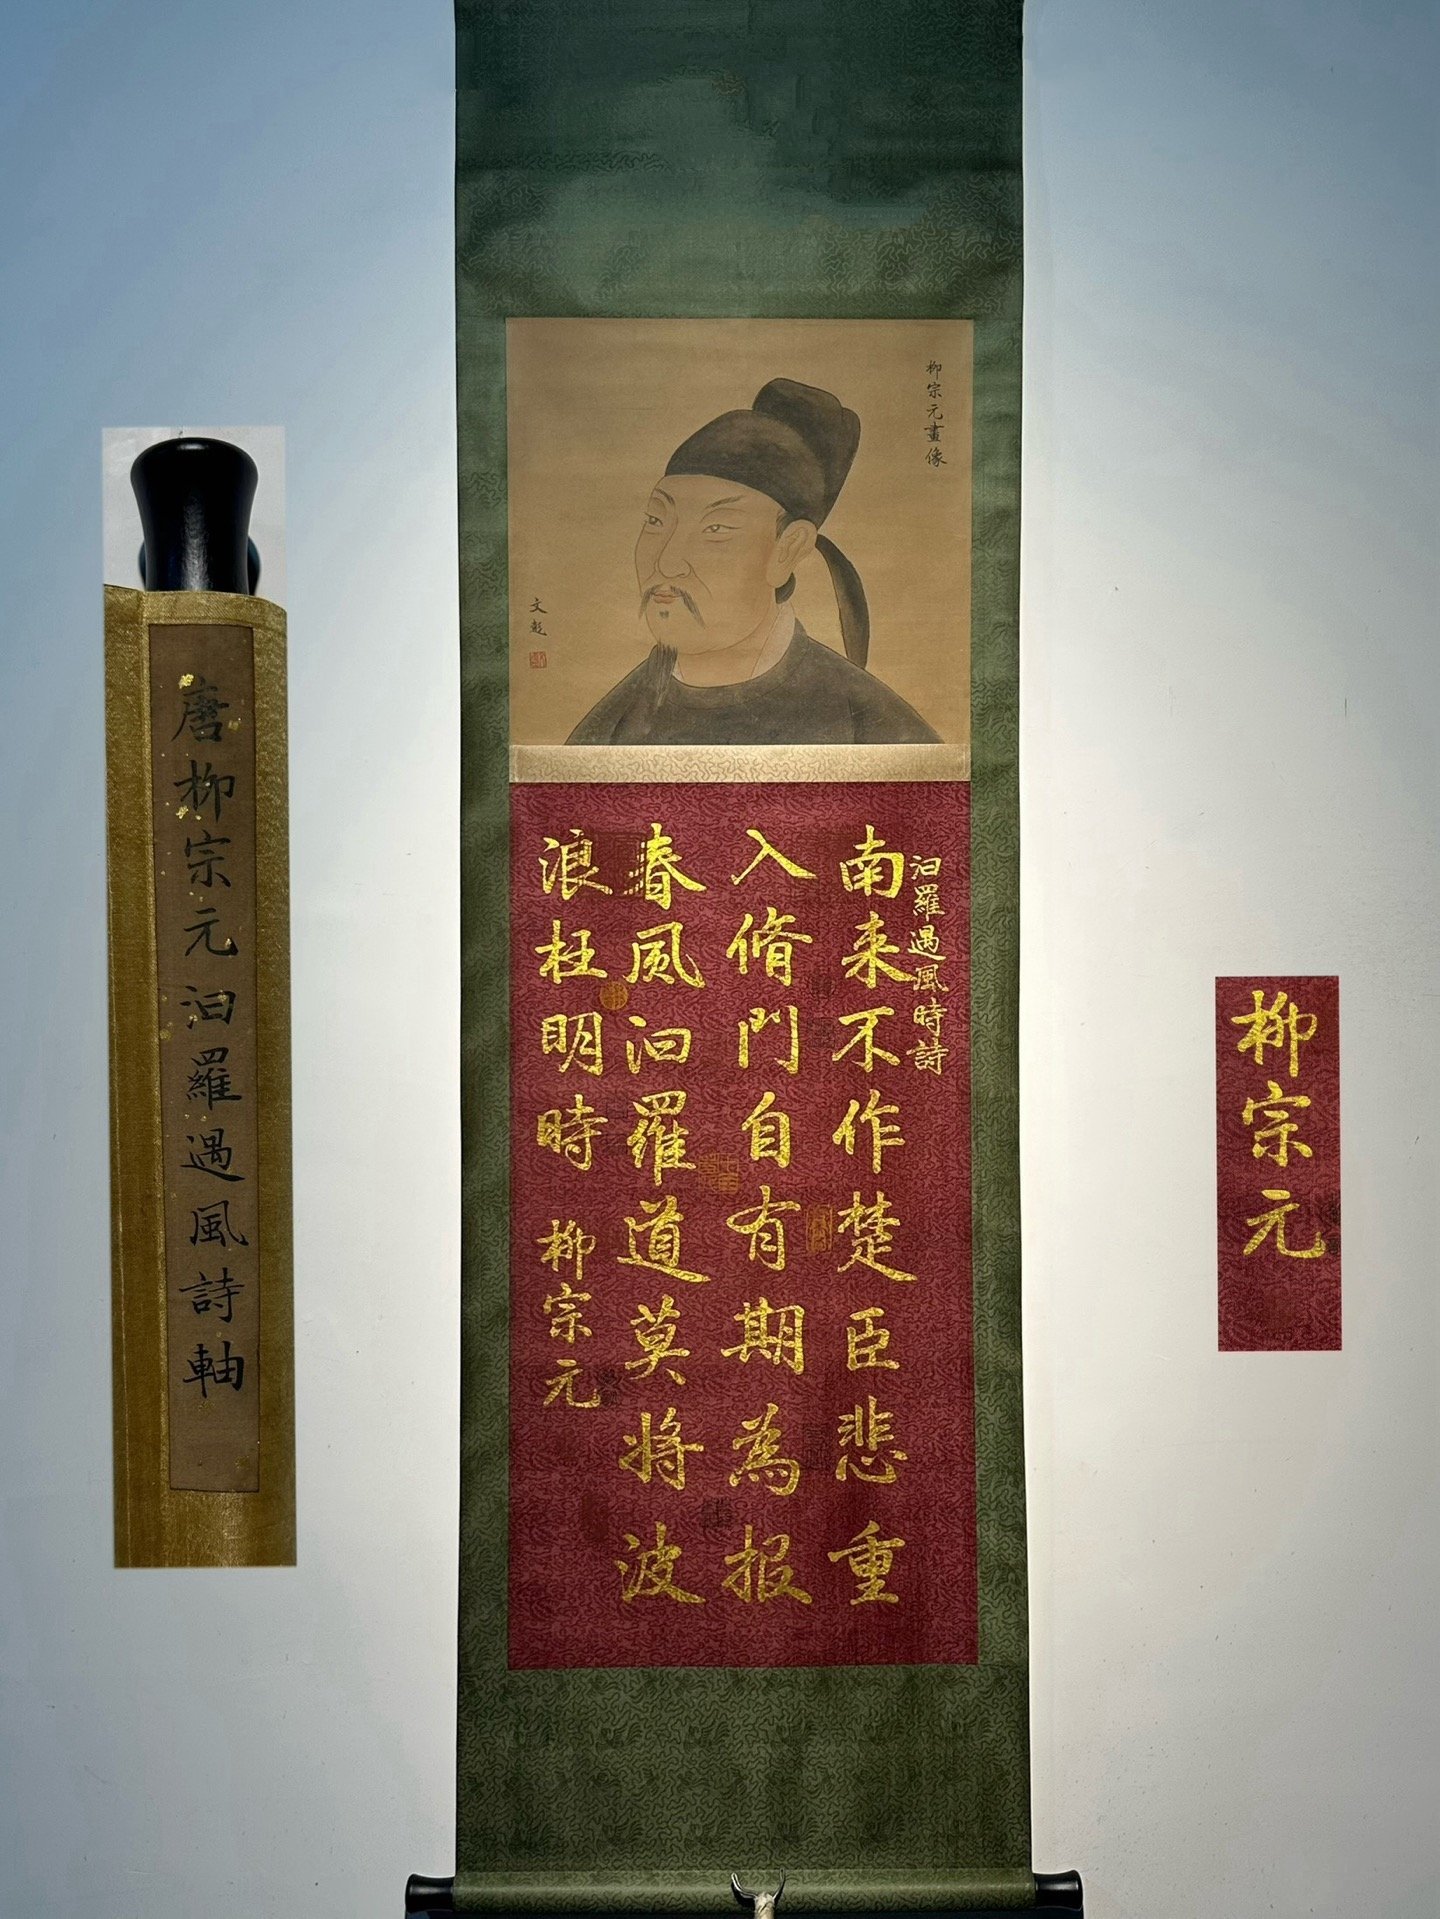 柳宗元畫像
文彭
汨羅遇風時詩
南来不作楚臣悲重
入脩門自有期為报
春風汨羅道莫将波
浪枉明時
柳宗元
唐柳宗元汨羅遇風詩軸
柳宗元